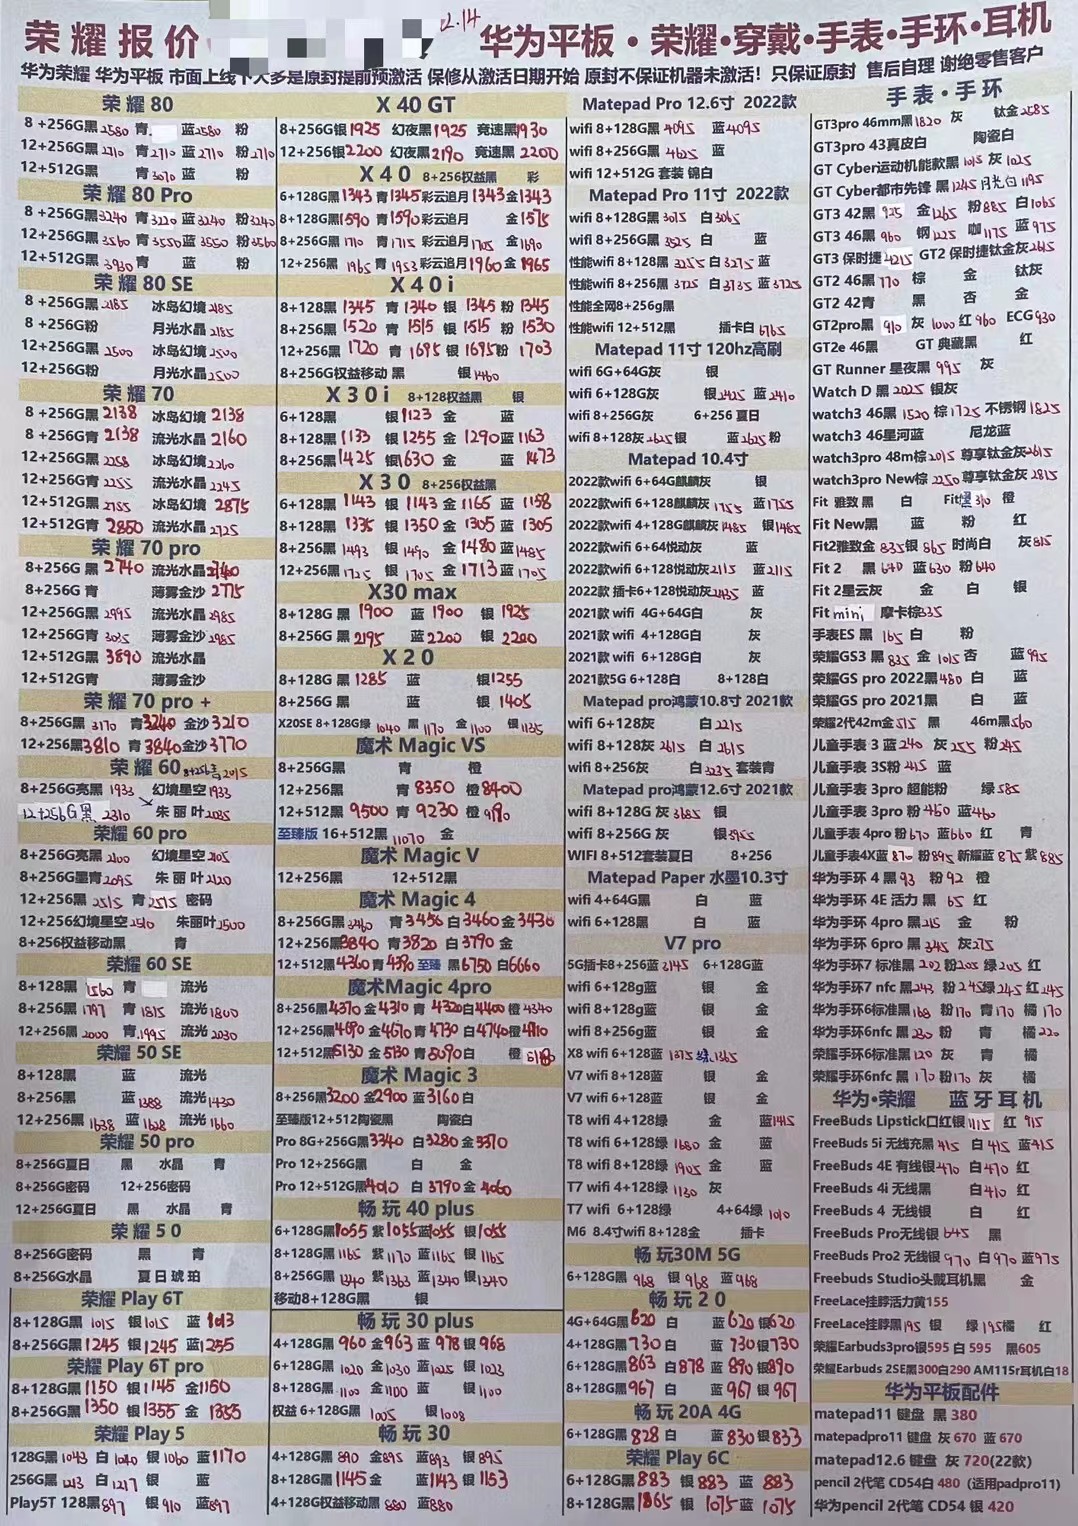 荣耀报价
2.14
华为平板·荣耀·穿戴·手表·手环·耳机
华为荣耀 华为平板 市面上线下大多是原封提前预激活 保修从激活日期开始 原封不保证机器未激活！只保证原封 售后自理 谢绝零售客户
荣耀80
8+256G黑2580 青 蓝2580 粉
12+256G黑2710 青2710 蓝2710 粉2710
12+512G黑 青3070 蓝 粉
荣耀80 Pro
8+256G黑3240 青3220 蓝3240 粉3240
12+256G黑3560 青3550 蓝3550 粉3560
12+512G黑3930 青 蓝 粉
荣耀80 SE
8+256G黑2185 冰岛幻境2185
8+256G粉 月光水晶2185
12+256G黑2500 冰岛幻境2500
12+256G粉 月光水晶2500
荣耀70
8+256G黑2138 冰岛幻境2138
8+256G青2138 流光水晶2160
12+256G黑2258 冰岛幻境2260
12+256G青2255 流光水晶2245
12+512G黑2755 冰岛幻境2875
12+512G青2850 流光水晶2725
荣耀70 pro
8+256G黑2740 流光水晶2740
8+256G青 薄雾金沙2775
12+256G黑2995 流光水晶2985
12+256G青3035 薄雾金沙2985
12+512G黑3890 流光水晶
12+512G青 薄雾金沙
荣耀70 pro +
8+256G黑3170 青3240 金沙3210
12+256黑3810 青3840 金沙3770
荣耀60 8+256青2015
8+256G亮黑1933 幻境星空1933
12+256G黑2310 朱丽叶2035
荣耀60 pro
8+256G亮黑2100 幻境星空2105
8+256G墨青2095 朱丽叶2120
12+256黑2515 青2515 密码
12+256幻境星空2540 朱丽叶2500
8+256权益移动黑 青
荣耀60 SE
8+128黑1560 青 流光
8+256黑1797 青1815 流光1800
12+256黑2000 青1995 流光2030
荣耀50 SE
8+128黑 蓝 流光
8+256黑 蓝1388 流光1430
12+256黑1638 蓝1628 流光1660
荣耀50 pro
8+256G夏日 黑 水晶 青
8+256G密码 12+256密码
12+256G夏日 黑 水晶 青
荣耀50
8+256G密码 黑 青
8+256G水晶 夏日琥珀
荣耀Play 6T
8+128G黑1015 银1015 蓝1013
8+256G黑1245 银1245 蓝1255
荣耀Play 6T pro
8+128G黑1150 银1145 金1150
8+256G黑1350 银1355 金1355
荣耀Play 5
128G黑1043 白1040 银1060 蓝1170
256G黑1213 白1217 银 蓝
Play5T 128黑897 银910 蓝897
X 40 GT
8+256G银1925 幻夜黑1925 竞速黑1930
12+256银2200 幻夜黑2190 竞速黑2200
X40 8+256G权益黑 彩
6+128G黑1343 青1345彩云追月1343金1343
8+128G黑1590 青1590彩云追月 金1575
8+256G黑1710 青1715彩云追月1705 金1690
12+256黑1965 青1953彩云追月1960 金1965
X40i
8+128黑1345 青1340 银1345 粉1345
8+256黑1520 青1515 银1515 粉1530
12+256黑1720 青1695 银1695粉1703
8+256G权益移动 黑 银1460
X30i 8+128G权益黑 银
6+128黑 银1123 金 蓝
8+128黑1133 银1255 金1290蓝1163
8+256黑1425 银1630 金 蓝1473
X30 8+256G权益黑
6+128G黑1143 银1143金1165 蓝1158
8+128G黑1335 银1350金1305 蓝1305
8+256G黑1493 银1490 金1480蓝1485
12+256黑1725 银1705 金1713蓝1705
X30 max
8+128G黑1900 蓝1900 银1925
8+256G黑2195 蓝2200 银2200
X20
8+128G黑1285 蓝 银1255
8+256G黑 蓝 银1405
X20SE 8+128G绿1040 黑1170 金1100 银1135
魔术Magic VS
8+256G黑 青 橙
12+256黑 青8350 橙8400
12+512黑9500 青9230 橙9190
至臻版16+512黑11070 金
魔术Magic V
12+256黑 12+512黑
魔术Magic 4
8+256G黑3460 青3456白3460金3430
12+256黑3840 青3820 白3790金
12+512黑4360青4390 至臻 黑6750白6660
魔术Magic 4pro
8+256黑4370金4310青4320白4400橙4340
12+256黑4690金4670青4730白4740橙4710
12+512黑5130金5130青5090白 橙5180
魔术Magic 3
8+256G黑3200金2900蓝3160白
至臻版12+512陶瓷黑 陶瓷白
Pro 8G+256G黑3340 白3280金3370
Pro 12+256G黑 白 金
Pro 12+512G黑4010 白3790金4060
畅玩40 plus
6+128G黑1055紫1055蓝1055银1055
8+128G黑1165 紫1170 蓝1165 银1165
8+256G黑1340紫1363蓝1340银1340
移动8+128G黑 银
畅玩30 plus
4+128G黑960 金963 蓝978 银968
6+128G黑1020 金1030 蓝1025 银1023
8+128G黑1100 金1100 蓝 银1100
权益6+128G黑1005 银1008
畅玩30
4+128G黑890 金895 蓝893 银895
8+128G黑1145金 蓝1143银1153
4+128G权益移动黑880 蓝880
Matepad Pro 12.6寸 2022款
wifi 8+128G黑4095 蓝4095
wifi 8+256G黑4625 蓝
wifi 12+512G 套装 锦白
Matepad Pro 11寸 2022款
wifi 8+128G黑3015 白3065
wifi 8+256G黑3525 白 蓝
性能wifi 8+128黑3255 白3275 蓝
性能wifi 8+256黑3725 白3735 蓝3725
性能全网8+256g黑
性能wifi 12+512黑 插卡白6765
Matepad 11寸 120hz高刷
wifi 6G+64G灰 银
wifi 6+128G灰 银2425 蓝2410
wifi 8+256G灰 6+256 夏日
wifi 8+128灰2625银 蓝2625粉
Matepad 10.4寸
2022款wifi 6+64G麒麟灰 银
2022款wifi 6+128麒麟灰1755 蓝1755
2022款wifi 4+128G麒麟灰1485 银1485
2022款wifi 6+64悦动灰 蓝
2022款wifi 6+128悦动灰2115 蓝2115
2022款 插卡6+128悦动灰2435 蓝
2021款wifi 4G+64G白 灰
2021款wifi 4+128G白 灰
2021款wifi 6+128G白 灰
2021款5G 6+128白 8+128白
Matepad pro鸿蒙10.8寸 2021款
wifi 6+128灰 白2215
wifi 8+128灰2615 白2615
wifi 8+256灰 白3235套装青
Matepad pro鸿蒙12.6寸 2021款
wifi 8+128G灰3685 银
wifi 8+256G灰 银3955
WIFI 8+512套装夏日 8+256
Matepad Paper 水墨10.3寸
wifi 4+64G黑 白 蓝
wifi 6+128黑 白 蓝
V7 pro
5G插卡8+256蓝2145 6+128G蓝
wifi 6+128g蓝 银 金
wifi 8+128g蓝 银 金
wifi 8+256g蓝 银 金
X8 wifi 6+128蓝1375 绿1365
V7 wifi 8+128蓝 银 金
V7 wifi 6+128蓝 银 金
T8 wifi 4+128绿 金 蓝1415
T8 wifi 6+128绿1680 金 蓝
T8 wifi 8+128绿1905 金 蓝
T7 wifi 4+128绿1130 灰
T7 wifi 6+128绿 4+64绿1010
M6 8.4寸wifi 8+128金 插卡
畅玩30M 5G
6+128G黑968 银968 蓝968
畅玩20
4G+64G黑620 白 蓝620银620
4+128G黑730白 蓝730银730
6+128G黑863 白878 蓝890银890
8+128G黑967 白 蓝967银967
畅玩20A 4G
6+128G黑828 白 蓝830银833
荣耀Play 6C
6+128G黑883 银883 蓝883
8+128G黑1865 银1075蓝1075
手表·手环
GT3pro 46mm黑1820 灰 钛金2585
GT3pro 43真皮白 陶瓷白
GT Cyber运动机能款黑1015 灰1025
GT Cyber都市先锋 黑1245月光白1195
GT3 42黑925 金1265 粉885 白1065
GT3 46黑960 钢1225 咖1175 蓝975
GT3 保时捷4215 GT2 保时捷钛金灰2615
GT2 46黑770 棕 金 钛灰
GT2 42青 黑 杏 金
GT2pro黑910 灰1000红960 ECG930
GT2e 46黑 GT 典藏黑 红
GT Runner 星夜黑995 灰
Watch D 黑2025 银灰
watch3 46黑1520 棕1725 不锈钢1825
watch3 46星河蓝 尼龙蓝
watch3pro 48m棕2015 尊享钛金灰2615
watch3pro New棕2250 尊享钛金灰2815
Fit 雅致 黑 白 Fit黑310 橙
Fit New黑 蓝 粉 红
Fit2雅致金835银865 时尚白 灰815
Fit 2 黑640 蓝630 粉640
Fit 2星云灰 金 白 银
Fit mini 摩卡棕335
手表ES 黑165 白 粉
荣耀GS3 黑835 金1015杏 蓝995
荣耀GS pro 2022黑480 白 蓝
荣耀GS pro 2021黑 白 蓝
荣耀2代42m金515 黑 46m黑560
儿童手表 3 蓝240 灰255 粉245
儿童手表 3S粉415 蓝
儿童手表 3pro 超能粉 绿585
儿童手表 3pro 粉460 蓝460
儿童手表 4pro 粉670 蓝660 红 青
儿童手表4X蓝870 粉895 新耀蓝875 紫885
华为手环 4 黑93 粉92 橙
华为手环 4E 活力 黑65 红
华为手环 4pro 黑215 金 粉
华为手环 6pro 黑345 灰275
华为手环7 标准黑202 粉205 绿205 红
华为手环7 nfc 黑243 粉245绿245 红245
华为手环6标准黑168 粉170 青170 橘170
华为手环6nfc 黑230 粉 青 橘220
荣耀手环6标准黑120 灰 青 橘
荣耀手环6nfc 黑170粉170 灰 橘
华为·荣耀 蓝牙耳机
FreeBuds Lipstick口红银1115 红915
FreeBuds 5i 无线充黑415 白415 蓝415
FreeBuds 4E 有线银470 白470 红
FreeBuds 4i 无线黑 白410 红
FreeBuds 4 无线银 白 红
FreeBuds Pro无线银645 黑
FreeBuds Pro2 无线银970 白970 蓝975
Freebuds Studio头戴耳机黑 金
FreeLace挂脖活力黄155
FreeLace挂脖黑195 银 绿195橘 红
荣耀Earbuds3pro银595 白595 黑605
荣耀Earbuds 2SE黑300白290 AM115r耳机白18
华为平板配件
matepad11 键盘 黑 380
matepadpro11 键盘 灰 670 蓝 670
matepad12.6 键盘 灰 720(22款)
pencil 2代笔 CD54白 480 (适用padpro11)
华为pencil 2代笔 CD54 银 420